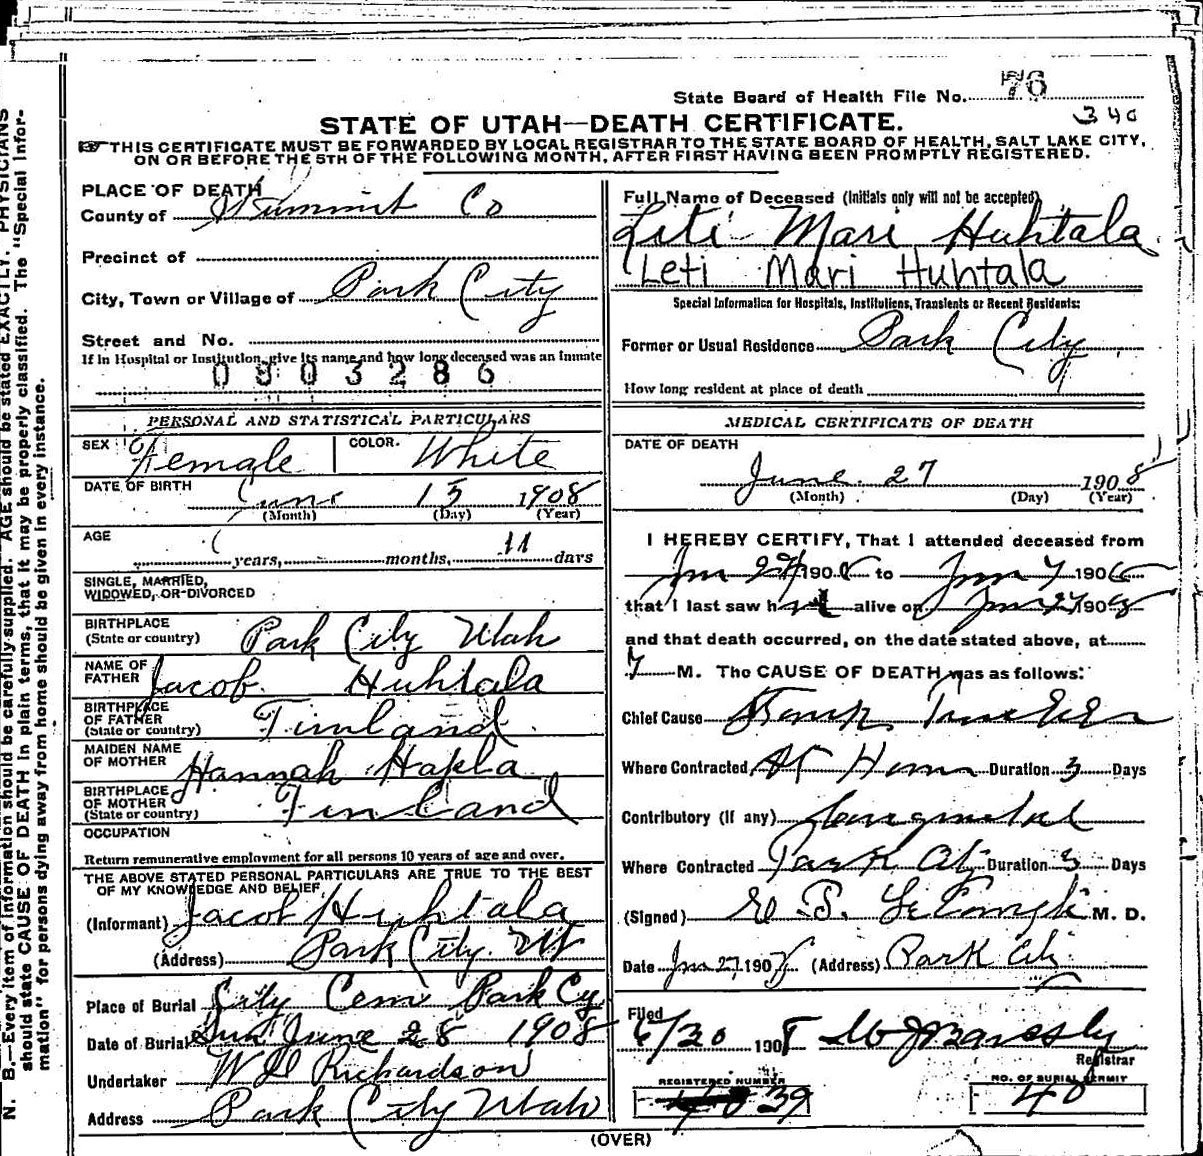 State Board of Health File No. 76
340
STATE OF UTAH—DEATH CERTIFICATE.
THIS CERTIFICATE MUST BE FORWARDED BY LOCAL REGISTRAR TO THE STATE BOARD OF HEALTH, SALT LAKE CITY,
ON OR BEFORE THE 5TH OF THE FOLLOWING MONTH, AFTER FIRST HAVING BEEN PROMPTLY REGISTERED.
PLACE OF DEATH
County of Summit Co
Precinct of
City, Town or Village of Park City
Street and No.
If in Hospital or Institution, give its name and how long deceased was an inmate
0903286
PERSONAL AND STATISTICAL PARTICULARS
SEX Female COLOR. White
DATE OF BIRTH June 15 1908
(Month) (Day) (Year)
AGE years, months, 11 days
SINGLE, MARRIED,
WIDOWED, OR DIVORCED
BIRTHPLACE
(State or country) Park City Utah
NAME OF
FATHER Jacob Huhtala
BIRTHPLACE
OF FATHER
(State or country) Finland
MAIDEN NAME
OF MOTHER Hannah Hakla
BIRTHPLACE
OF MOTHER
(State or country) Finland
OCCUPATION
Return remunerative employment for all persons 10 years of age and over.
THE ABOVE STATED PERSONAL PARTICULARS ARE TRUE TO THE BEST
OF MY KNOWLEDGE AND BELIEF
(Informant) Jacob Huhtala
(Address) Park City. Ut
Place of Burial City Cem Park Cy
Date of Burial Sun June 28 1908
Undertaker W D Richardson
Address Park City Utah
Full Name of Deceased (Initials only will not be accepted)
Liti Mari Huhtala
Leti Mari Huhtala
Special Information for Hospitals, Institutions, Transients or Recent Residents:
Former or Usual Residence Park City
How long resident at place of death
MEDICAL CERTIFICATE OF DEATH
DATE OF DEATH
June 27 1908
(Month) (Day) (Year)
I HEREBY CERTIFY, That I attended deceased from
190 to 190
that I last saw h alive on 190
and that death occurred, on the date stated above, at
7 M. The CAUSE OF DEATH was as follows:
Chief Cause
Where Contracted At Home Duration 3 Days
Contributory (If any)
Where Contracted Park City Duration 3 Days
(Signed) M. D.
Date Jun 27 190 (Address) Park City
Filed
6/30 1908
Registrar
REGISTERED NUMBER
39
NO. OF BURIAL PERMIT
40
(OVER)
N. B.—Every item of information should be carefully supplied. AGE should be stated EXACTLY. PHYSICIANS
should state CAUSE OF DEATH in plain terms, that it may be properly classified. The "Special Infor-
mation" for persons dying away from home should be given in every instance.